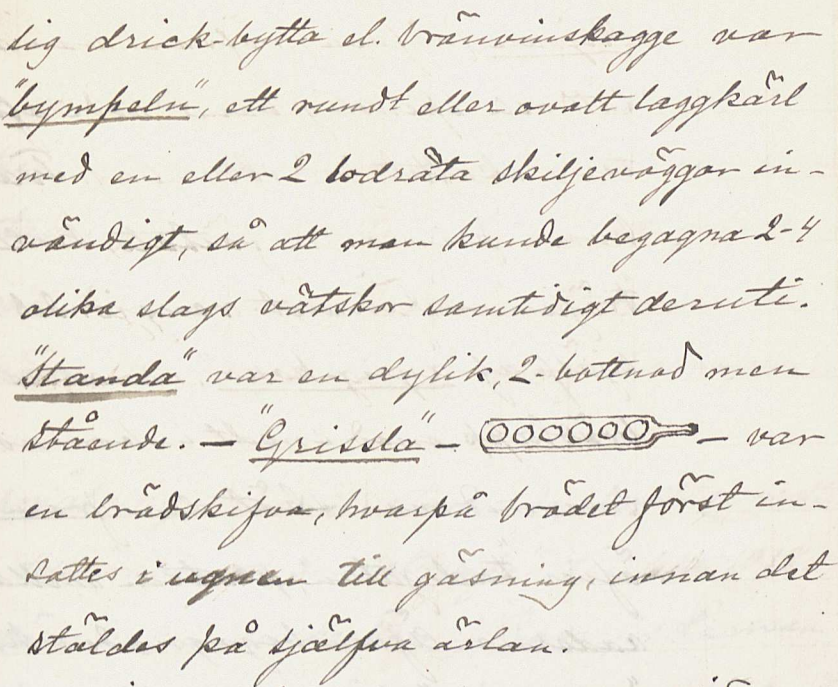 lig drick-bytta el. bränvinskagge var
"bympeln", ett rundt eller ovalt laggkärl
med en eller 2 lodräta skiljeväggar in-
vändigt, så att man kunde begagna 2-4
olika slags vätskor samtidigt deruti.
"Standa" var en dylik, 2-bottnad men
stående. — "Grissla" — — var
en brädskifva, hvarpå brödet först in-
sattes i ugnen till gäsning, innan det
stäldes på själfva ärlan.